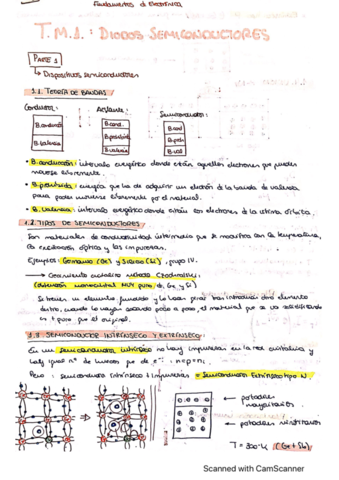 Fundamentos de Electrónica
T.M.1.: DIODOS SEMICONDUCTORES
PARTE 1
↳ Dispositivos semiconductores
1.1. TEORÍA DE BANDAS
Conductor: Aislante: Semiconductor:
B.conducción B.cond. B.cond
B.valencia B.prohibida B.proh
B.valencia B.vale
• B.conducción: intervalo energético donde están aquellos electrones que pueden
moverse libremente.
• B.prohibida: energía que ha de adquirir un electrón de la banda de valencia
para poder moverse libremente por el material.
• B. Valencia: intervalo energético donde están los electrones de la última órbita.
1.2. TIPOS DE SEMICONDUCTORES
Son materiales de conductividad intermedia que se modifica con la temperatura,
la excitación óptica y las impurezas.
Ejemplos: Germanio (Ge) y Silicio (Si), grupo IV.
→ Crecimiento cristalino método Czochralski:
(obtención monocristal MUY puro, de Ge y Si)
Se tiene un elemento fundido y lo van
éste, cuando lo vayan sacando poco a poco, el material que se va solidificando
es + puro que el original.
1.3. SEMICONDUCTOR INTRÍNSECO Y EXTRÍNSECO:
En un semiconductor intrínseco no hay impurezas en la red cristalina y
hay igual nº de huecos que de e⁻: n=p=ni.
Pero: semiconductor intrínseco + impurezas = Semiconductor Extrínseco tipo N
→ portadores
mayoritarios
→ portadores minoritarios
T = 300 K (Ge + Sb)
Scanned with CamScanner